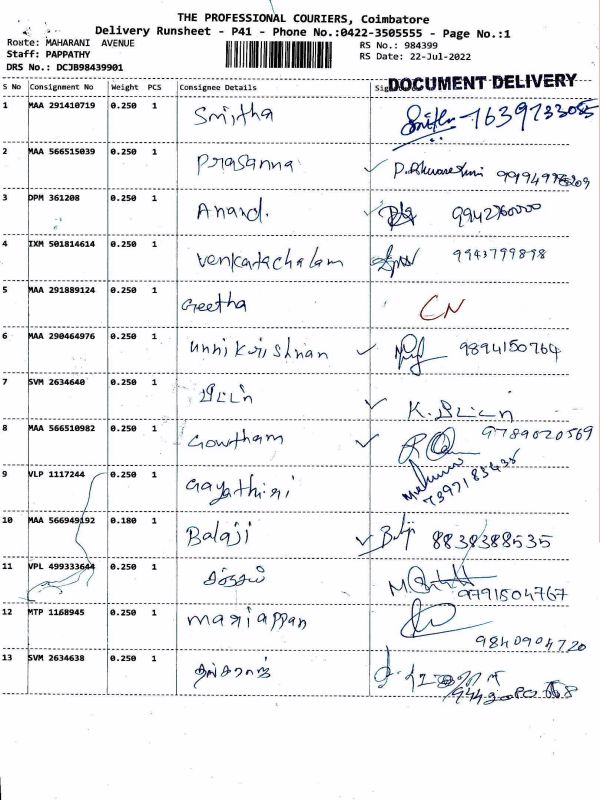 THE PROFESSIONAL COURIERS, Coimbatore
Delivery Runsheet - P41 - Phone No.:0422-3505555 - Page No.:1
Route: MAHARANI AVENUE RS No.: 984399
Staff: PAPPATHY RS Date: 22-Jul-2022
DRS No.: DCJB98439901
DOCUMENT DELIVERY
S No Consignment No Weight PCS Consignee Details
1 MAA 291410719 0.250 1 Smitha 7639733085
2 MAA 566515039 0.250 1 Prasanna
3 DPM 361208 0.250 1 Anand.
4 IXM 501814614 0.250 1 Venkatachalam 9943799898
5 MAA 291889124 0.250 1 Geetha CN
6 MAA 290464976 0.250 1 unnikrishnan 9894150764
7 SVM 2634640 0.250 1
8 MAA 566510982 0.250 1 Gowtham 9789020569
9 VLP 1117244 0.250 1 Gayathiri
10 MAA 566949192 0.180 1 Balaji Balaji 8838388535
11 VPL 499333644 0.250 1 9791504767
12 MTP 1168945 0.250 1 mariappan 9840904720
13 SVM 2634638 0.250 1